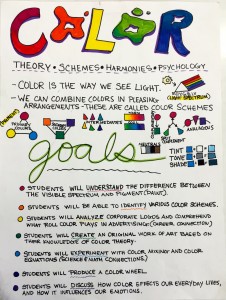 COLOR
THEORY • SCHEMES • HARMONIES • PSYCHOLOGY
- COLOR IS THE WAY WE SEE LIGHT.
- WE CAN COMBINE COLORS IN PLEASING
ARRANGEMENTS - THESE ARE CALLED COLOR SCHEMES
PRIMARY COLORS
INTERMEDIATES
ANALOGOUS
NEUTRALS
goals
TINT
TONE
SHADE
STUDENTS WILL UNDERSTAND THE DIFFERENCE BETWEEN
THE VISIBLE SPECTRUM AND PIGMENT (PAINT).
STUDENTS WILL BE ABLE TO IDENTIFY VARIOUS COLOR SCHEMES.
STUDENTS WILL ANALYZE CORPORATE LOGOS AND COMPREHEND
WHAT ROLL COLOR PLAYS IN ADVERTISING. (CAREER CONNECTION)
STUDENTS WILL CREATE AN ORIGINAL WORK OF ART BASED ON
THEIR KNOWLEDGE OF COLOR THEORY.
STUDENTS WILL EXPERIMENT WITH COLOR MIXING AND COLOR
EQUATIONS (SCIENCE & MATH CONNECTIONS)
STUDENTS WILL PRODUCE A COLOR WHEEL.
STUDENTS WILL DISCUSS HOW COLOR EFFECTS OUR EVERYDAY LIVES,
AND HOW IT INFLUENCES OUR EMOTIONS.